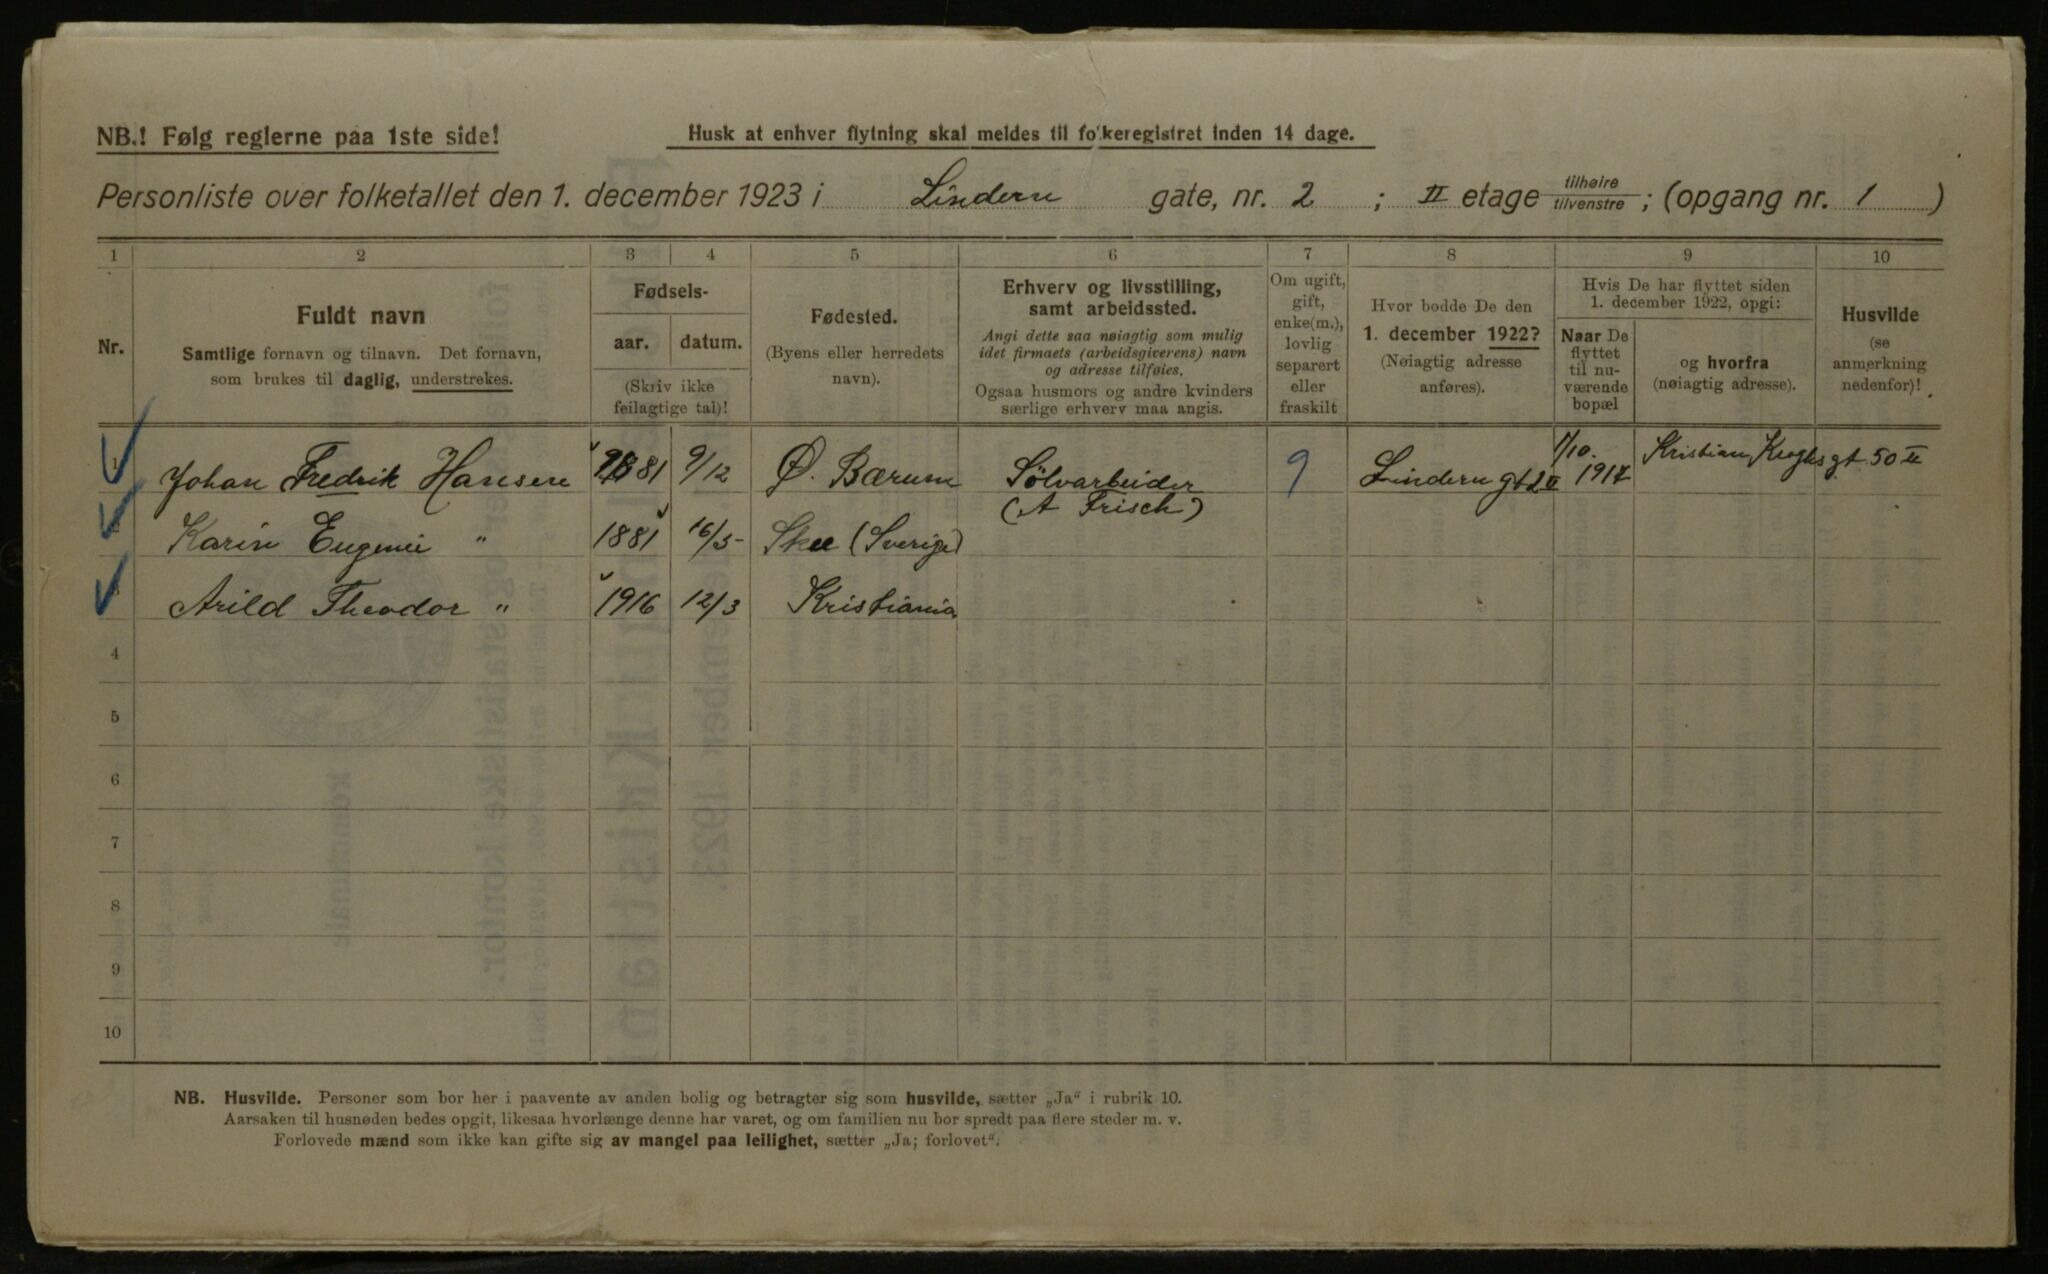 NB.! Følg reglerne paa 1ste side!
Husk at enhver flytning skal meldes til folkeregistret inden 14 dage.
Personliste over folketallet den 1. december 1923 i Lindern gate, nr. 2 ; II etage tilhøire tilvenstre ; (opgang nr. 1 )
1 2 3 4 5 6 7 8 9 10
Nr.
Fuldt navn
Samtlige fornavn og tilnavn. Det fornavn,
som brukes til daglig, understrekes.
Fødsels-
aar. datum.
(Skriv ikke
feilagtige tal)!
Fødested.
(Byens eller herredets
navn).
Erhverv og livsstilling,
samt arbeidssted.
Angi dette saa nøiagtig som mulig
idet firmaets (arbeidsgiverens) navn
og adresse tilføies.
Ogsaa husmors og andre kvinders
særlige erhverv maa angis.
Om ugift,
gift,
enke(m.),
lovlig
separert
eller
fraskilt
Hvor bodde De den
1. december 1922?
(Nøiagtig adresse
anføres).
Hvis De har flyttet siden
1. december 1922, opgi:
Naar De
flyttet
til nu-
værende
bopæl
og hvorfra
(nøiagtig adresse).
Husvilde
(se
anmerkning
nedenfor)!
1 Johan Fredrik Hansen 1881 9/12 Ø. Bærum Sölvarbeider 9 Lindern gt 2 II 1/10. 1917 Kristian Kroghs gt. 50 II
(A Frisch)
2 Karin Eugenie " 1881 16/5 Skee (Sverige)
3 Arild Theodor " 1916 12/3 Kristiania
4
5
6
7
8
9
10
NB. Husvilde. Personer som bor her i paavente av anden bolig og betragter sig som husvilde, sætter „Ja" i rubrik 10.
Aarsaken til husnøden bedes opgit, likesaa hvorlænge denne har varet, og om familien nu bor spredt paa flere steder m. v.
Forlovede mænd som ikke kan gifte sig av mangel paa leilighet, sætter „Ja; forlovet".